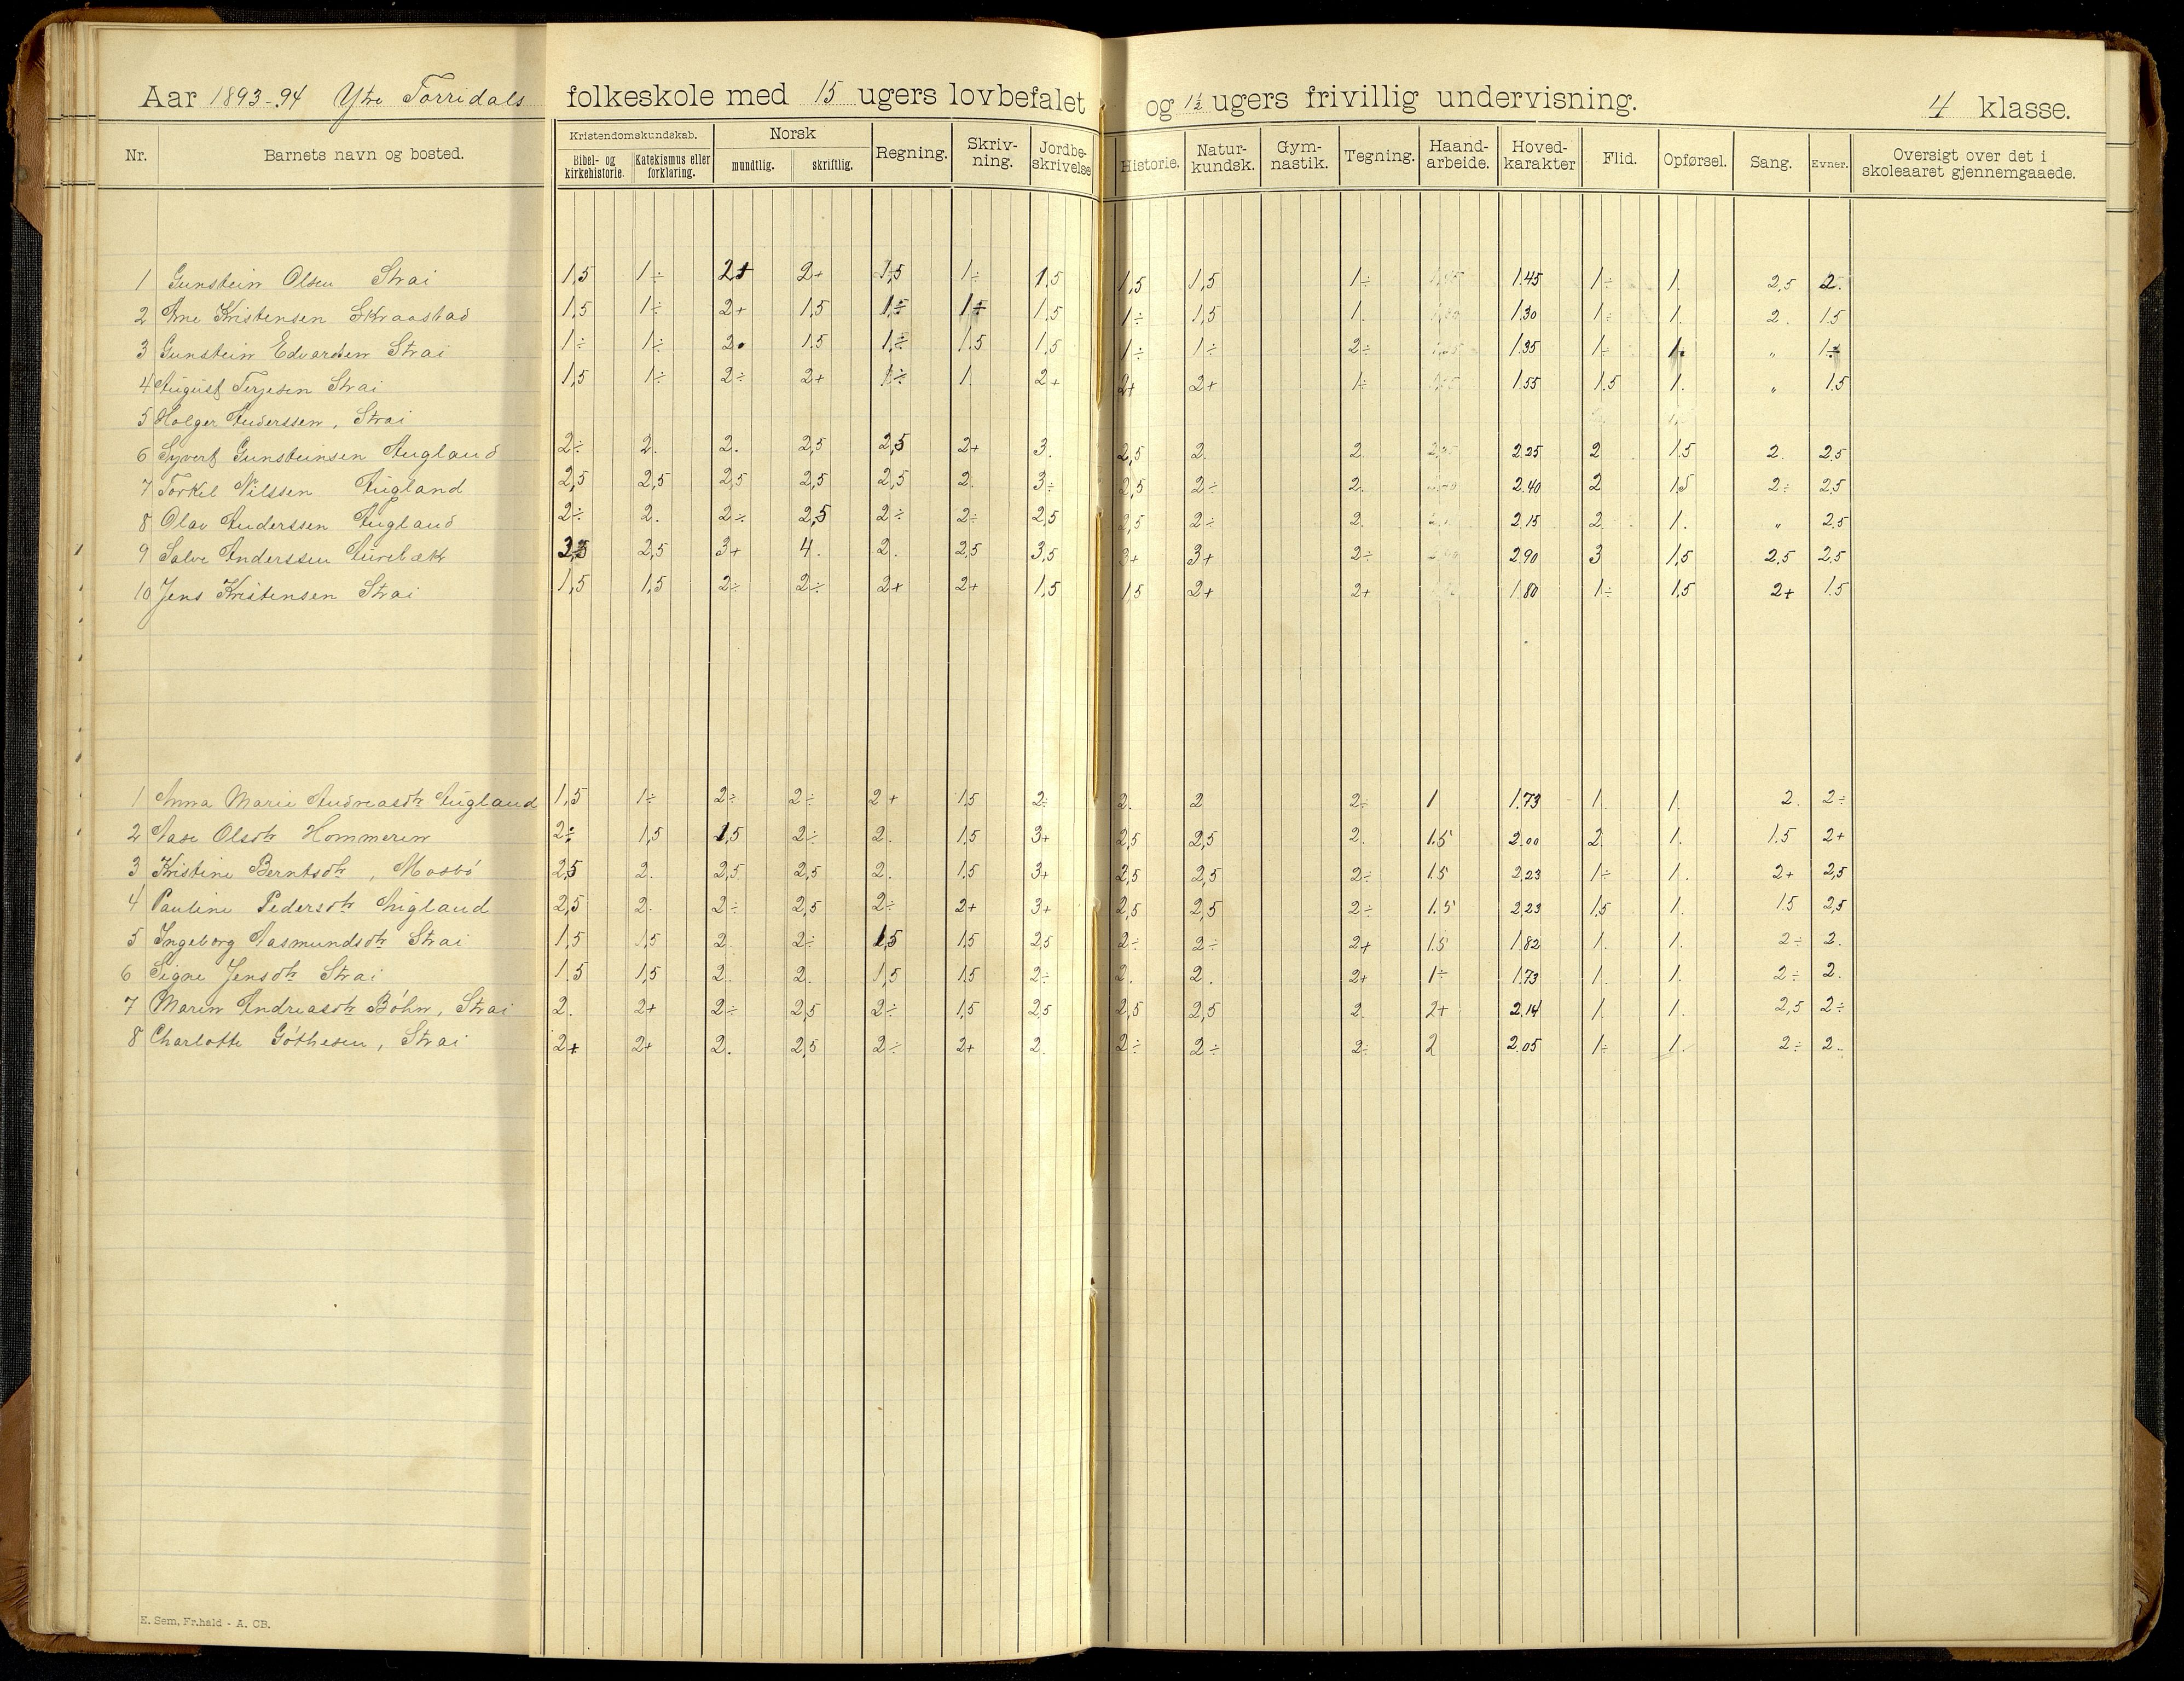 Aar 1893-94 Ytre Torridals folkeskole med 15 ugers lovbefalet og 1½ ugers frivillig undervisning. 4 klasse.
Nr. Barnets navn og bosted. Kristendomskundskab. Bibel- og kirkehistorie. Katekismus eller forklaring. Norsk mundtlig. skriftlig. Regning. Skriv-ning. Jordbe-skrivelse Historie. Natur-kundsk. Gym-nastik. Tegning. Haand-arbeide. Hoved-karakter Flid. Opførsel. Sang. Evner. Oversigt over det i skoleaaret gjennemgaaede.
1 Gunstein Olsen Strai 1,5 1÷ 2+ 2+ 1,5 1÷ 1,5 1,5 1,5 1÷ 1.45 1÷ 1. 2,5 2.
2 Arne Kristensen Skraastad 1,5 1÷ 2+ 1,5 1÷ 1÷ 1,5 1÷ 1,5 1. 1.30 1÷ 1. 2. 1.5
3 Gunstein Edvardsen Strai 1÷ 1÷ 2. 1.5 1÷ 1.5 1,5 1÷ 1÷ 2÷ 1.35 1÷ 1. " 1÷
4 August Terjesen Strai 1,5 1÷ 2÷ 2+ 1÷ 1 2+ 2+ 2+ 1÷ 1.55 1.5 1. " 1.5
5 Holger Anderssen, Strai
6 Syvert Gunsteinsen Augland 2÷ 2. 2. 2,5 2,5 2+ 3. 2,5 2. 2. 2.25 2 1.5 2. 2.5
7 Torkel Nilssen Augland 2,5 2,5 2,5 2,5 2,5 2. 3÷ 2,5 2÷ 2. 2.40 2 1.5 2÷ 2.5
8 Olav Anderssen Augland 2÷ 2. 2÷ 2,5 2÷ 2÷ 2,5 2,5 2÷ 2. 2.15 2. 1. " 2.5
9 Salve Anderssen Aurebæk 2,5 3+ 4. 2. 2,5 3,5 3+ 3+ 2÷ 2.90 3 1,5 2.5 2.5
10 Jens Kristensen Strai 1,5 1,5 2÷ 2÷ 2+ 2+ 1,5 1,5 2+ 2+ 1.80 1÷ 1,5 2+ 1.5
1 Anna Marie Andreasdtr Augland 1,5 1÷ 2÷ 2÷ 2+ 1.5 2÷ 2. 2 2÷ 1 1.73 1. 1. 2. 2÷
2 Aase Olsdtr Hommeren 2÷ 1,5 1,5 2÷ 2. 1.5 3+ 2,5 2,5 2. 1.5 2.00 2. 1. 1.5 2+
3 Kristine Berntsdtr, Mosbö 2,5 2. 2,5 2,5 2. 1.5 3+ 2,5 2,5 2÷ 1.5 2.23 1÷ 1. 2+ 2,5
4 Pauline Pedersdtr Augland 2,5 2. 2÷ 2,5 2÷ 2+ 3+ 2,5 2,5 2÷ 1.5 2.23 1.5 1. 1.5 2,5
5 Ingeborg Aasmundsdtr Strai 1,5 1,5 2 2÷ 1,5 1.5 2,5 2÷ 2÷ 2+ 1.5 1.82 1. 1. 2÷ 2.
6 Signe Jensdtr Strai 1.5 1,5 2. 2. 1,5 1.5 2÷ 2. 2. 2+ 1÷ 1.73 1. 1. 2÷ 2.
7 Maren Andreasdtr Böhn, Strai 2. 2+ 2÷ 2,5 2÷ 1.5 2,5 2,5 2,5 2. 2+ 2.14 1. 1. 2,5 2÷
8 Charlotte Göthesen, Strai 2+ 2+ 2. 2,5 2÷ 2+ 2. 2÷ 2÷ 2÷ 2 2.05 1÷ 1. 2÷ 2.
E. Sem, Fr.hald - A. CB.